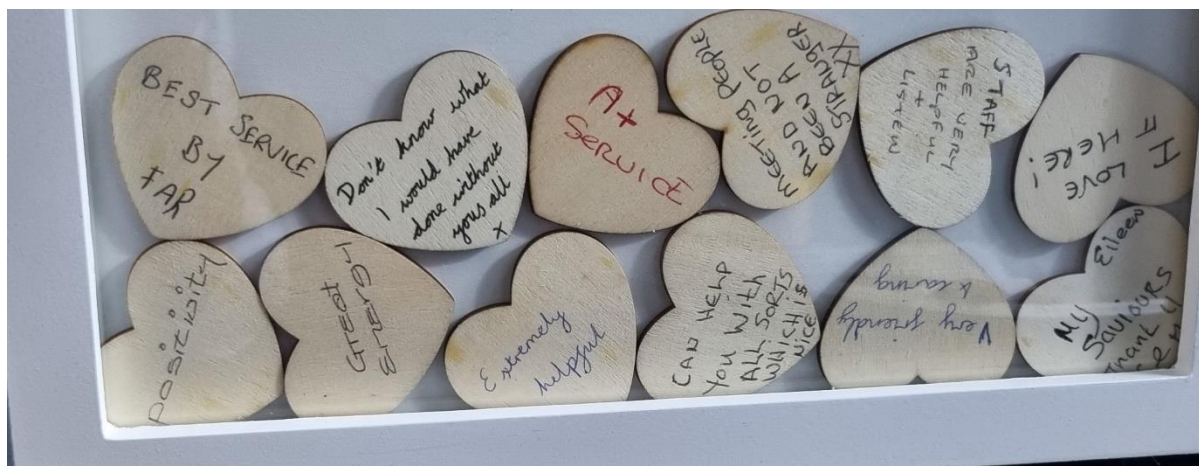 BEST SERVICE
BY
FAR
Don't know what
I would have
done without
yous all
x
A+
SERVICE
MEETING PEOPLE
AND NOT
BEEN A
STRANGER
XX
STAFF
ARE VERY
HELPFUL
+
LISTEN
LOVE
HERE!
positivity
GREAT
ENERGY
Extremely
helpful
CAN HELP
YOU WITH
ALL SORTS
WHICH IS
NICE
Very friendly
& caring
Eileen
My
Saviours
Thank